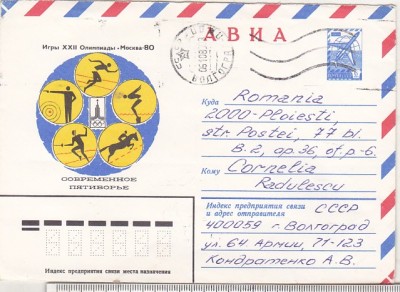 Игры XXII Олимпиады • Москва-80
АВИА
ВОЛГОГРАД
Куда Romania
2000-Ploiești,
str. Postei, 77 bl.
B-2, ap.36, of.p.-6.
Кому Cornelia
Radulescu
СОВРЕМЕННОЕ
ПЯТИБОРЬЕ
Индекс предприятия связи
и адрес отправителя
СССР
400059 г. Волгоград
ул. 64 Армии, 71-123
Кондратенко А.В.
Индекс предприятия связи места назначения